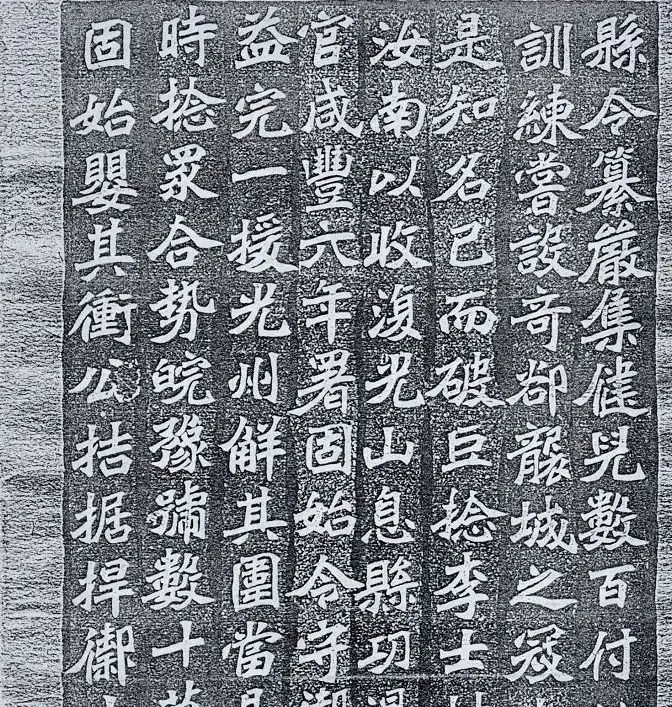 縣令纂嚴集健兒數百付
訓練嘗設奇卻襲城之寇
是知名已而破巨捻李士
汝南以收復光山息縣功
官咸豐六年署固始令守
益完一援光州解其圍當
時捻眾合勢皖豫號數十
固始嬰其衝公拮据捍禦